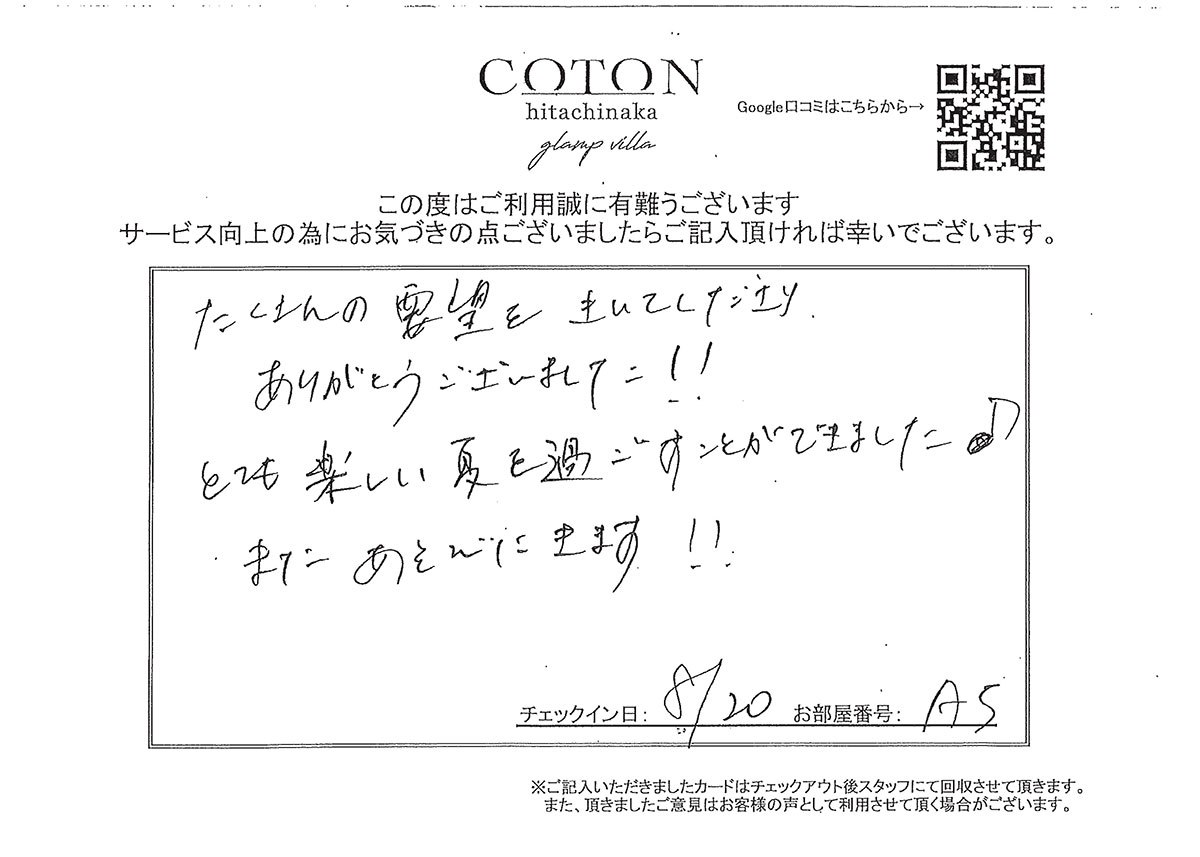 COTON
hitachinaka
glamp villa
Google口コミはこちらから→
この度はご利用誠に有難うございます
サービス向上の為にお気づきの点ございましたらご記入頂ければ幸いでございます。
たくさんの要望をきいてくださり
ありがとうございました!!
とても楽しい夏を過ごすことができました♪
またあそびにきます!!
チェックイン日: 8/20 お部屋番号: A5
※ご記入いただきましたカードはチェックアウト後スタッフにて回収させて頂きます。
また、頂きましたご意見はお客様の声として利用させて頂く場合がございます。